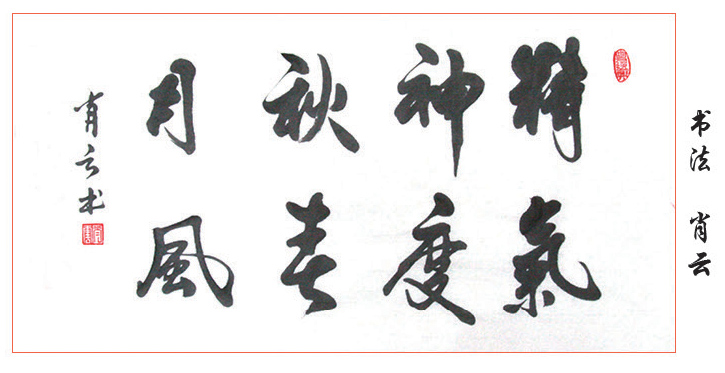 精氣
神度
秋春
月風
肖云书
书法 肖云